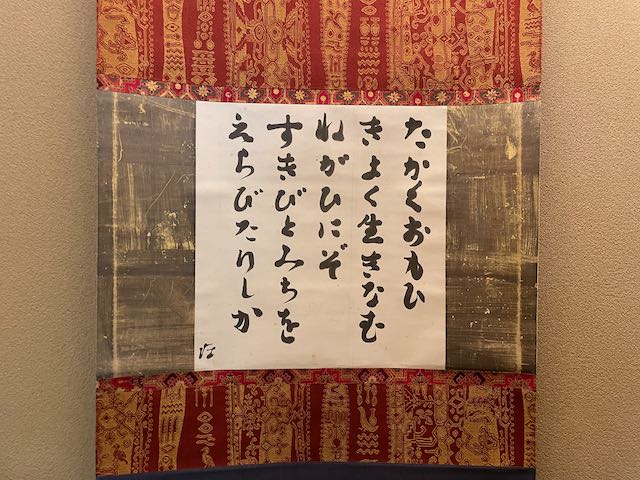 たかくおもひ
きよく生きなむ
ねがひにぞ
すきびとみちを
えらびたりしか